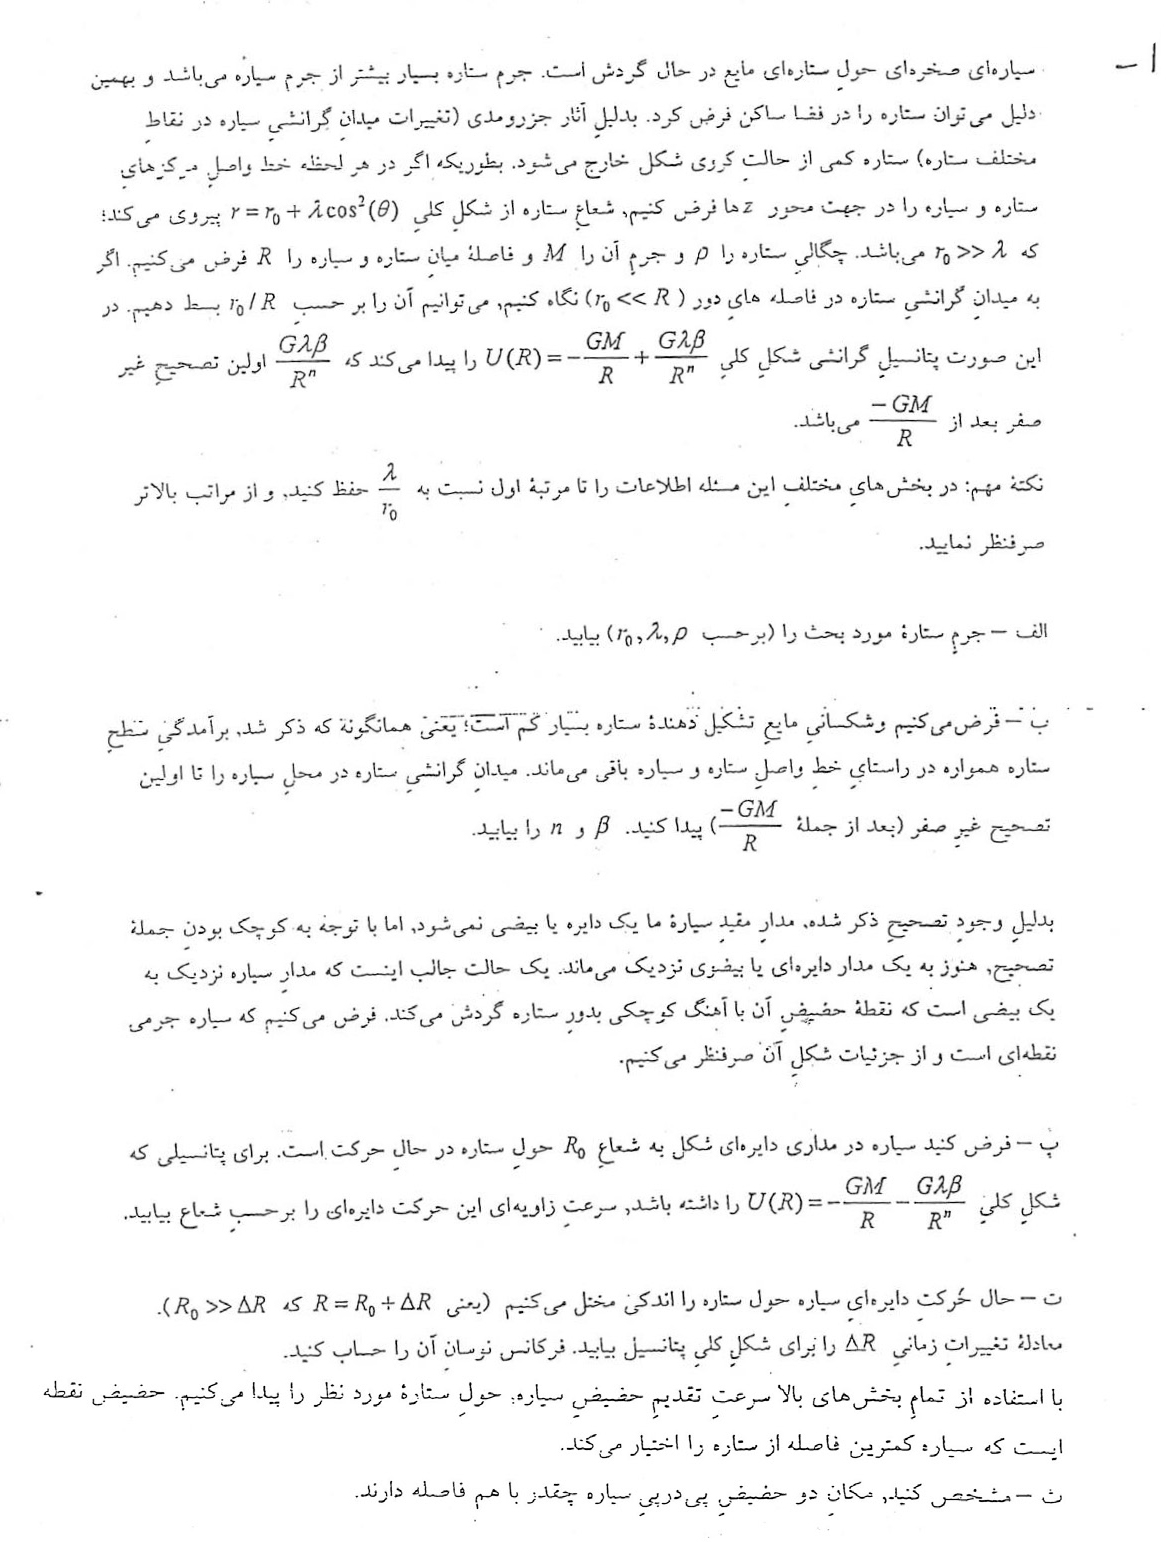 ۱ –
سیاره‌ای صخره‌ای حولِ ستاره‌ای مایع در حال گردش است. جرم ستاره بسیار بیشتر از جرم سیاره می‌باشد و بهمین
دلیل می‌توان ستاره را در فضا ساکن فرض کرد. بدلیلِ آثار جزرومدی (تغییرات میدانِ گرانشیِ سیاره در نقاطِ
مختلف ستاره) ستاره کمی از حالتِ کروی شکل خارج می‌شود. بطوریکه اگر در هر لحظه خط واصلِ مرکزهایِ
ستاره و سیاره را در جهت محور z ها فرض کنیم, شعاعِ ستاره از شکلِ کلیِ r = r₀ + λcos²(θ) پیروی می‌کند؛
که r₀ >> λ می‌باشد. چگالیِ ستاره را ρ و جرمِ آن را M و فاصلهٔ میانِ ستاره و سیاره را R فرض می‌کنیم. اگر
به میدانِ گرانشیِ ستاره در فاصله هایِ دور (r₀ << R) نگاه کنیم, می‌توانیم آن را بر حسبِ r₀/R بسط دهیم. در
این صورت پتانسیلِ گرانشی شکلِ کلیِ U(R) = −GM/R + Gλβ/Rⁿ را پیدا می‌کند که Gλβ/Rⁿ اولین تصحیحِ غیر
صفر بعد از −GM/R می‌باشد.
نکتهٔ مهم: در بخش‌هایِ مختلفِ این مسئله اطلاعات را تا مرتبهٔ اول نسبت به λ/r₀ حفظ کنید, و از مراتب بالاتر
صرفنظر نمایید.
الف – جرمِ ستارهٔ مورد بحث را (برحسب r₀,λ,ρ) بیابید.
ب – فرض می‌کنیم وشکسانیِ مایعِ تشکیل دهندهٔ ستاره بسیار کم است؛ یعنی همانگونه که ذکر شد, برآمدگیِ سطحِ
ستاره همواره در راستایِ خطِ واصلِ ستاره و سیاره باقی می‌ماند. میدانِ گرانشیِ ستاره در محلِ سیاره را تا اولین
تصحیح غیرِ صفر (بعد از جملهٔ −GM/R) پیدا کنید. β و n را بیابید.
بدلیلِ وجودِ تصحیحِ ذکر شده, مدارِ مقیدِ سیارهٔ ما یک دایره یا بیضی نمی‌شود, اما با توجه به کوچک بودنِ جملهٔ
تصحیح, هنوز به یک مدار دایره‌ای یا بیضوی نزدیک می‌ماند. یک حالت جالب اینست که مدارِ سیاره نزدیک به
یک بیضی است که نقطهٔ حضیضِ آن با آهنگ کوچکی بدورِ ستاره گردش می‌کند. فرض می‌کنیم که سیاره جرمی
نقطه‌ای است و از جزئیات شکلِ آن صرفنظر می‌کنیم.
پ – فرض کنید سیاره در مداری دایره‌ای شکل به شعاعِ R₀ حولِ ستاره در حالِ حرکت است. برای پتانسیلی که
شکل کلیِ U(R) = −GM/R − Gλβ/Rⁿ را داشته باشد, سرعتِ زاویه‌ای این حرکت دایره‌ای را برحسبِ شعاع بیابید.
ت – حال حرکتِ دایره‌ایِ سیاره حول ستاره را اندکی مختل می‌کنیم (یعنی R = R₀ + ΔR که R₀ >> ΔR).
معادلهٔ تغییراتِ زمانیِ ΔR را برای شکلِ کلیِ پتانسیل بیابید. فرکانس نوسان آن را حساب کنید.
با استفاده از تمامِ بخش‌های بالا سرعتِ تقدیمِ حضیضِ سیاره, حولِ ستارهٔ مورد نظر را پیدا می‌کنیم. حضیض نقطه
ایست که سیاره کمترین فاصله از ستاره را اختیار می‌کند.
ث – مشخص کنید, مکانِ دو حضیضِ پی‌درپیِ سیاره چقدر با هم فاصله دارند.